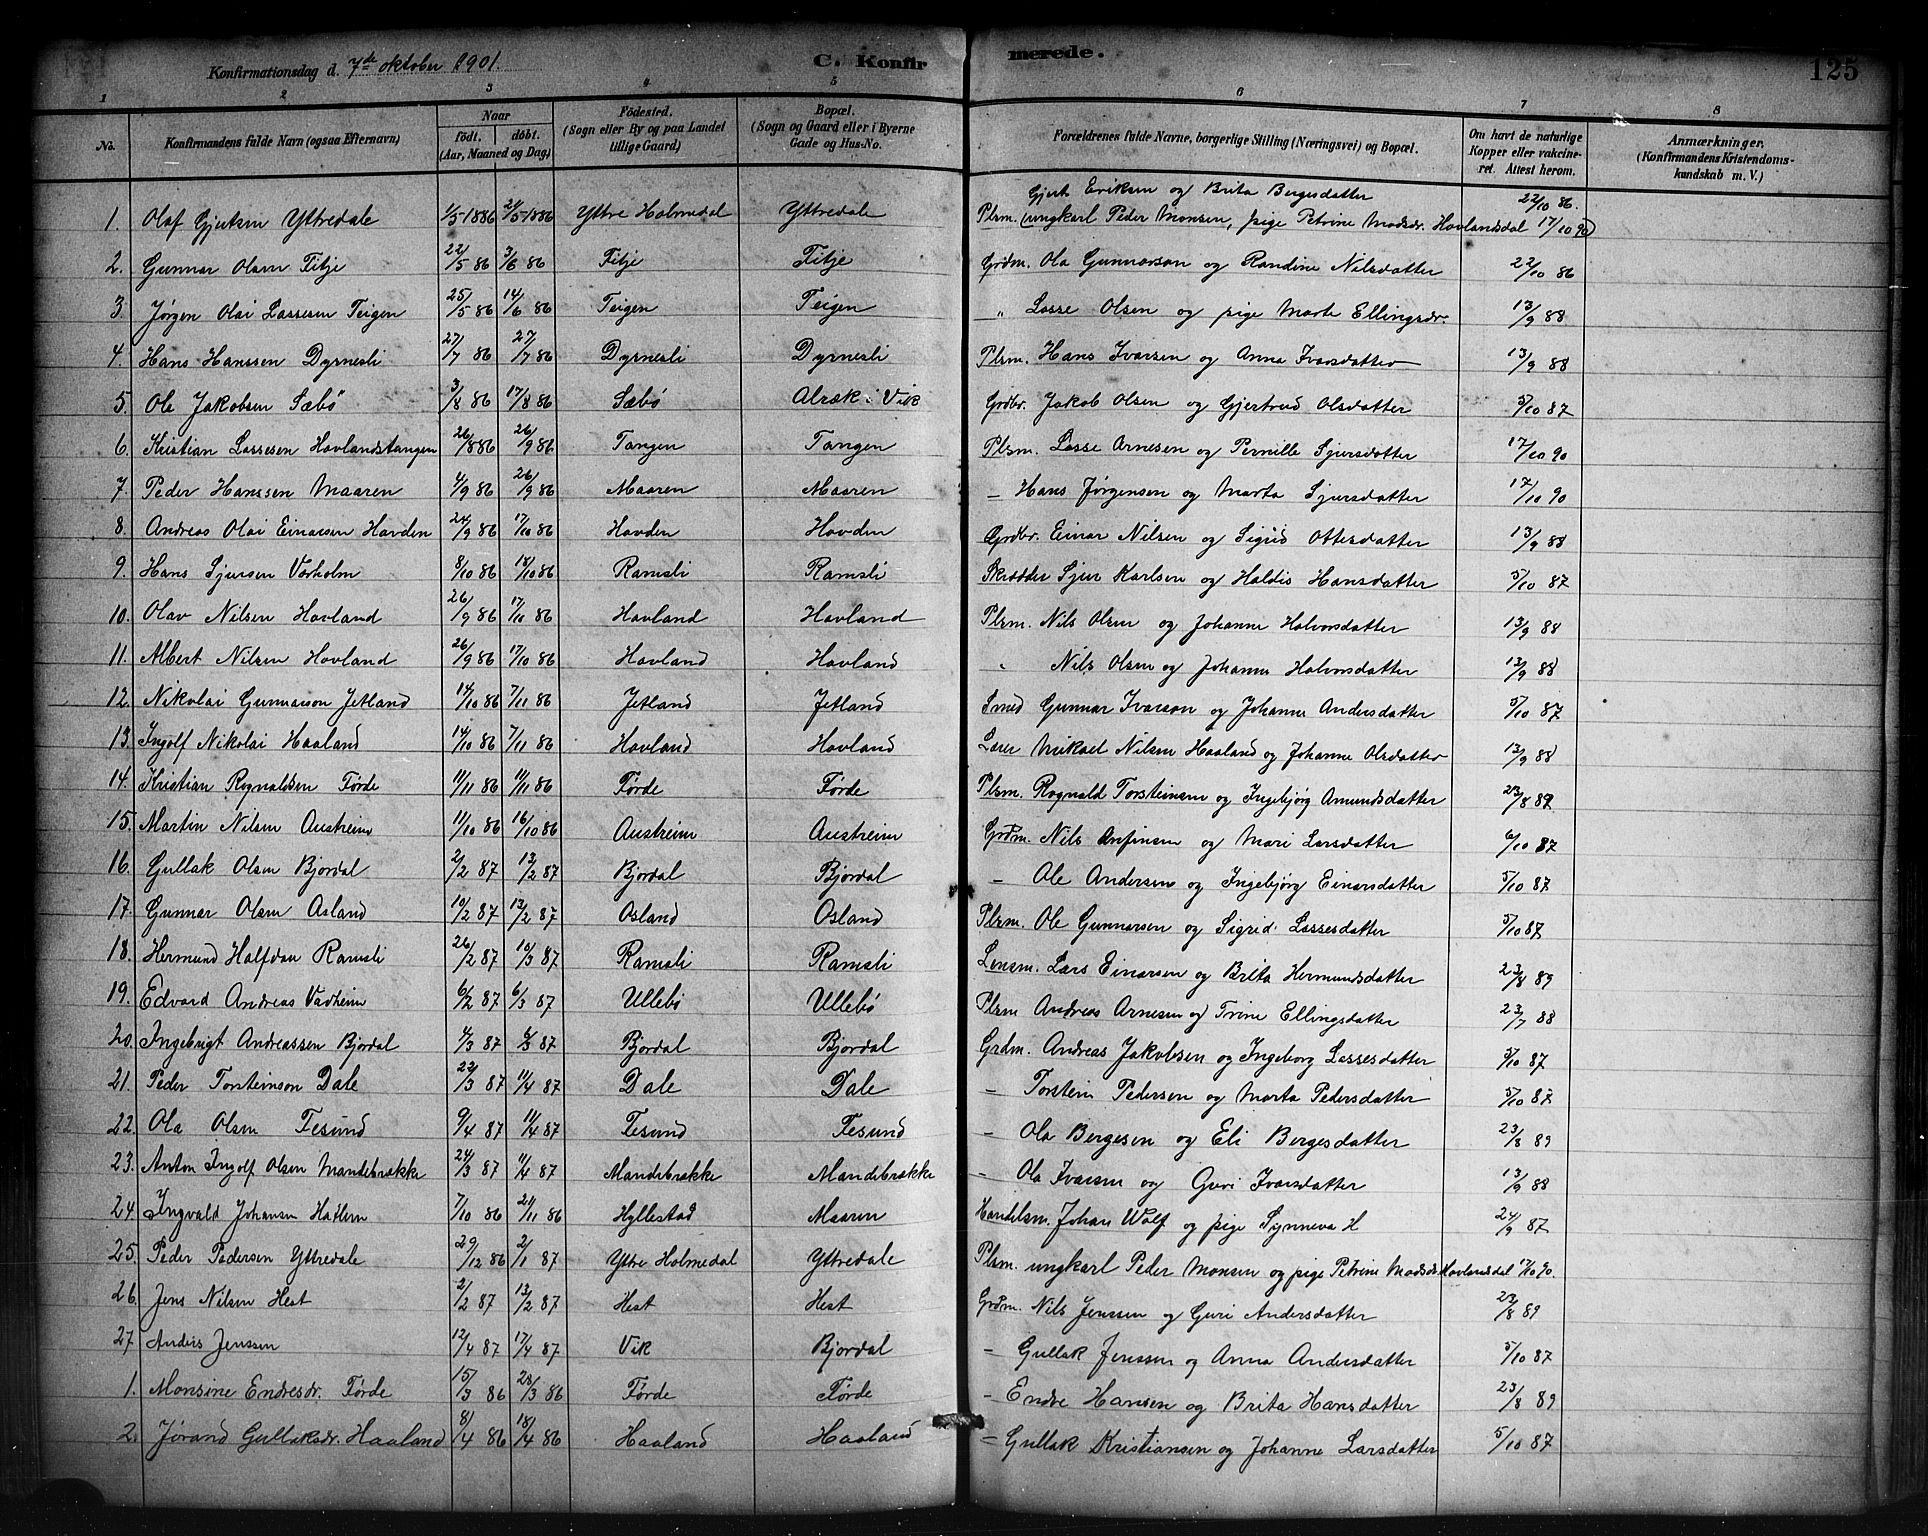 Konfirmationsdag d. 7de oktober 1901. C. Konfirmerede. 125
1 2 3 4 5 6 7 8
No. Konfirmandens fulde Navn (ogsaa Efternavn) Naar født. døbt. (Aar, Maaned og Dag) Fødested. (Sogn eller By og paa Landet tillige Gaard) Bopæl. (Sogn og Gaard eller i Byerne Gade og Hus-No. Forældrenes fulde Navne, borgerlige Stilling (Næringsvei) og Bopæl. Om havt de naturlige Kopper eller vakcineret. Attest herom. Anmærkninger. (Konfirmandens Kristendomskundskab m. V.)
Gjert Eriksen og Brita Bergesdatter 22/10 86.
1. Olaf Gjertsen Yttredale 1/5-1886 2/5-1886 Yttre Holmedal Yttredale Plsm. (ungkarl Peder Monsen, pige Petrine Madsdr. Hovlandsdal 17/10 90)
2. Gunnar Olsen Fitje 22/5 86 3/6 86 Fitje Fitje Grdm. Ola Gunnarson og Randine Nilsdatter 22/10 86
3. Jørgen Olai Lassesen Teigen 25/5 86 14/6 86 Teigen Teigen " Lasse Olsen og pige Marte Ellingsdr. 13/9 88
4. Hans Hanssen Dyrnesli 27/7 86 27/7 86 Dyrnesli Dyrnesli Plsm. Hans Ivarsen og Anna Ivarsdatter 13/9 88
5. Ole Jakobsen Sæbø 3/8 86 17/8 86 Sæbø Alræk i Vik Grdbr. Jakob Olsen og Gjertrud Olsdatter 5/10 87
6. Kristian Lassesen Hovlandstangen 26/8 86 26/9 86 Tangen Tangen Plsm. Lasse Arnesen og Pernille Sjursdatter 17/10 90
7. Peder Hanssen Maaren 4/9 86 26/9 86 Maaren Maaren - Hans Jørgensen og Marta Sjursdatter 17/10 90
8. Andreas Olai Einarsen Havden 24/9 86 17/10 86 Havden Hovden Grdbr. Einar Nilsen og Sigrid Ottesdatter 13/9 88
9. Hans Sjursen Varholm 8/10 86 18/10 86 Ramsli Ramsli Skrædder Sjur Karlsen og Haldis Hansdatter 5/10 87
10. Olav Nilsen Hovland 26/9 86 17/10 86 Hovland Hovland Plsm. Nils Olsen og Johanne Halvorsdatter 13/9 88
11. Albert Nilsen Hovland 26/9 86 17/10 86 Hovland Hovland " Nils Olsen og Johanne Halvorsdatter 13/9 88
12. Nikolai Gunnarson Jetland 14/10 86 7/11 86 Jetland Jetland Smed Gunnar Ivarson og Johanne Andersdatter 5/10 87
13. Ingolf Nikolai Haaland 14/10 86 7/11 86 Hovland Hovland Lærer Mikael Nilsen Haaland og Johanne Olsdatter 13/9 88
14. Kristian Rognaldsen Førde 11/11 86 11/11 86 Førde Førde Plsm. Rognald Torsteinsen og Ingebjørg Amundsdatter 23/8 89
15. Martin Nilsen Austreim 11/10 86 16/10 86 Austreim Austreim Grdm. Nils Anfinsen og Mari Larsdatter 6/10 87
16. Gullak Olsen Bjordal 2/2 87 13/2 87 Bjordal Bjordal - Ole Andersen og Ingebjørg Einarsdatter 5/10 87
17. Gunnar Olsen Osland 10/2 87 13/2 87 Osland Osland Plsm. Ole Gunnarsen og Sigrid Lassesdatter 5/10 87
18. Hermund Halfdan Ramsli 26/2 87 10/3 87 Ramsli Ramsli Lensm. Lars Einarsen og Brita Hermundsdatter 23/8 89
19. Edvard Andreas Vadheim 6/2 87 6/3 87 Ullebø Ullebø Plsm Andreas Arnesen og Trine Ellingsdatter 23/7 88
20. Ingebrigt Andreassen Bjordal 4/3 87 6/3 87 Bjordal Bjordal Grdm. Andreas Jakobsen og Ingeborg Lassesdatter 5/10 87
21. Peder Torsteinson Dale 22/3 87 11/4 87 Dale Dale - Torstein Pedersen og Marta Pedersdatter 5/10 87
22. Ola Olsen Tesund 9/4 87 11/4 87 Tesund Tesund - Ola Bergesen og Eli Bergesdatter 23/8 89
23. Anton Ingolf Olsen Mandebrække 24/3 87 11/4 87 Mandebrække Mandebrække - Ola Ivarsen og Guri Ivarsdatter 13/9 88
24. Ingvald Johansen Hatlem 7/10 86 21/11 86 Hyllestad Maaren Handelsm. Johan Wolf og pige Synneva H 24/9 87
25. Peder Pedersen Yttredale 29/12 86 2/1 87 Yttre Holmedal Yttredale Plsm. ungkarl Peder Monsen og pige Petrine Madsdr. Hovlandsdal 17/10 90.
26. Jens Nilsen Hest 2/2 87 13/2 87 Hest Hest Grdm. Nils Jenssen og Guri Andersdatter 23/8 89
27. Anders Jenssen 12/4 87 17/4 87 Vik Bjordal - Gullak Jenssen og Anna Andersdatter 5/10 87
1. Monsine Endresdr. Førde 15/3 86 28/3 86 Førde Førde - Endre Hansen og Brita Hansdatter 23/8 89
2. Jørand Gullaksdr. Haaland 8/4 86 18/4 86 Haaland Haaland - Gullak Kristiansen og Johanne Larsdatter 5/10 87